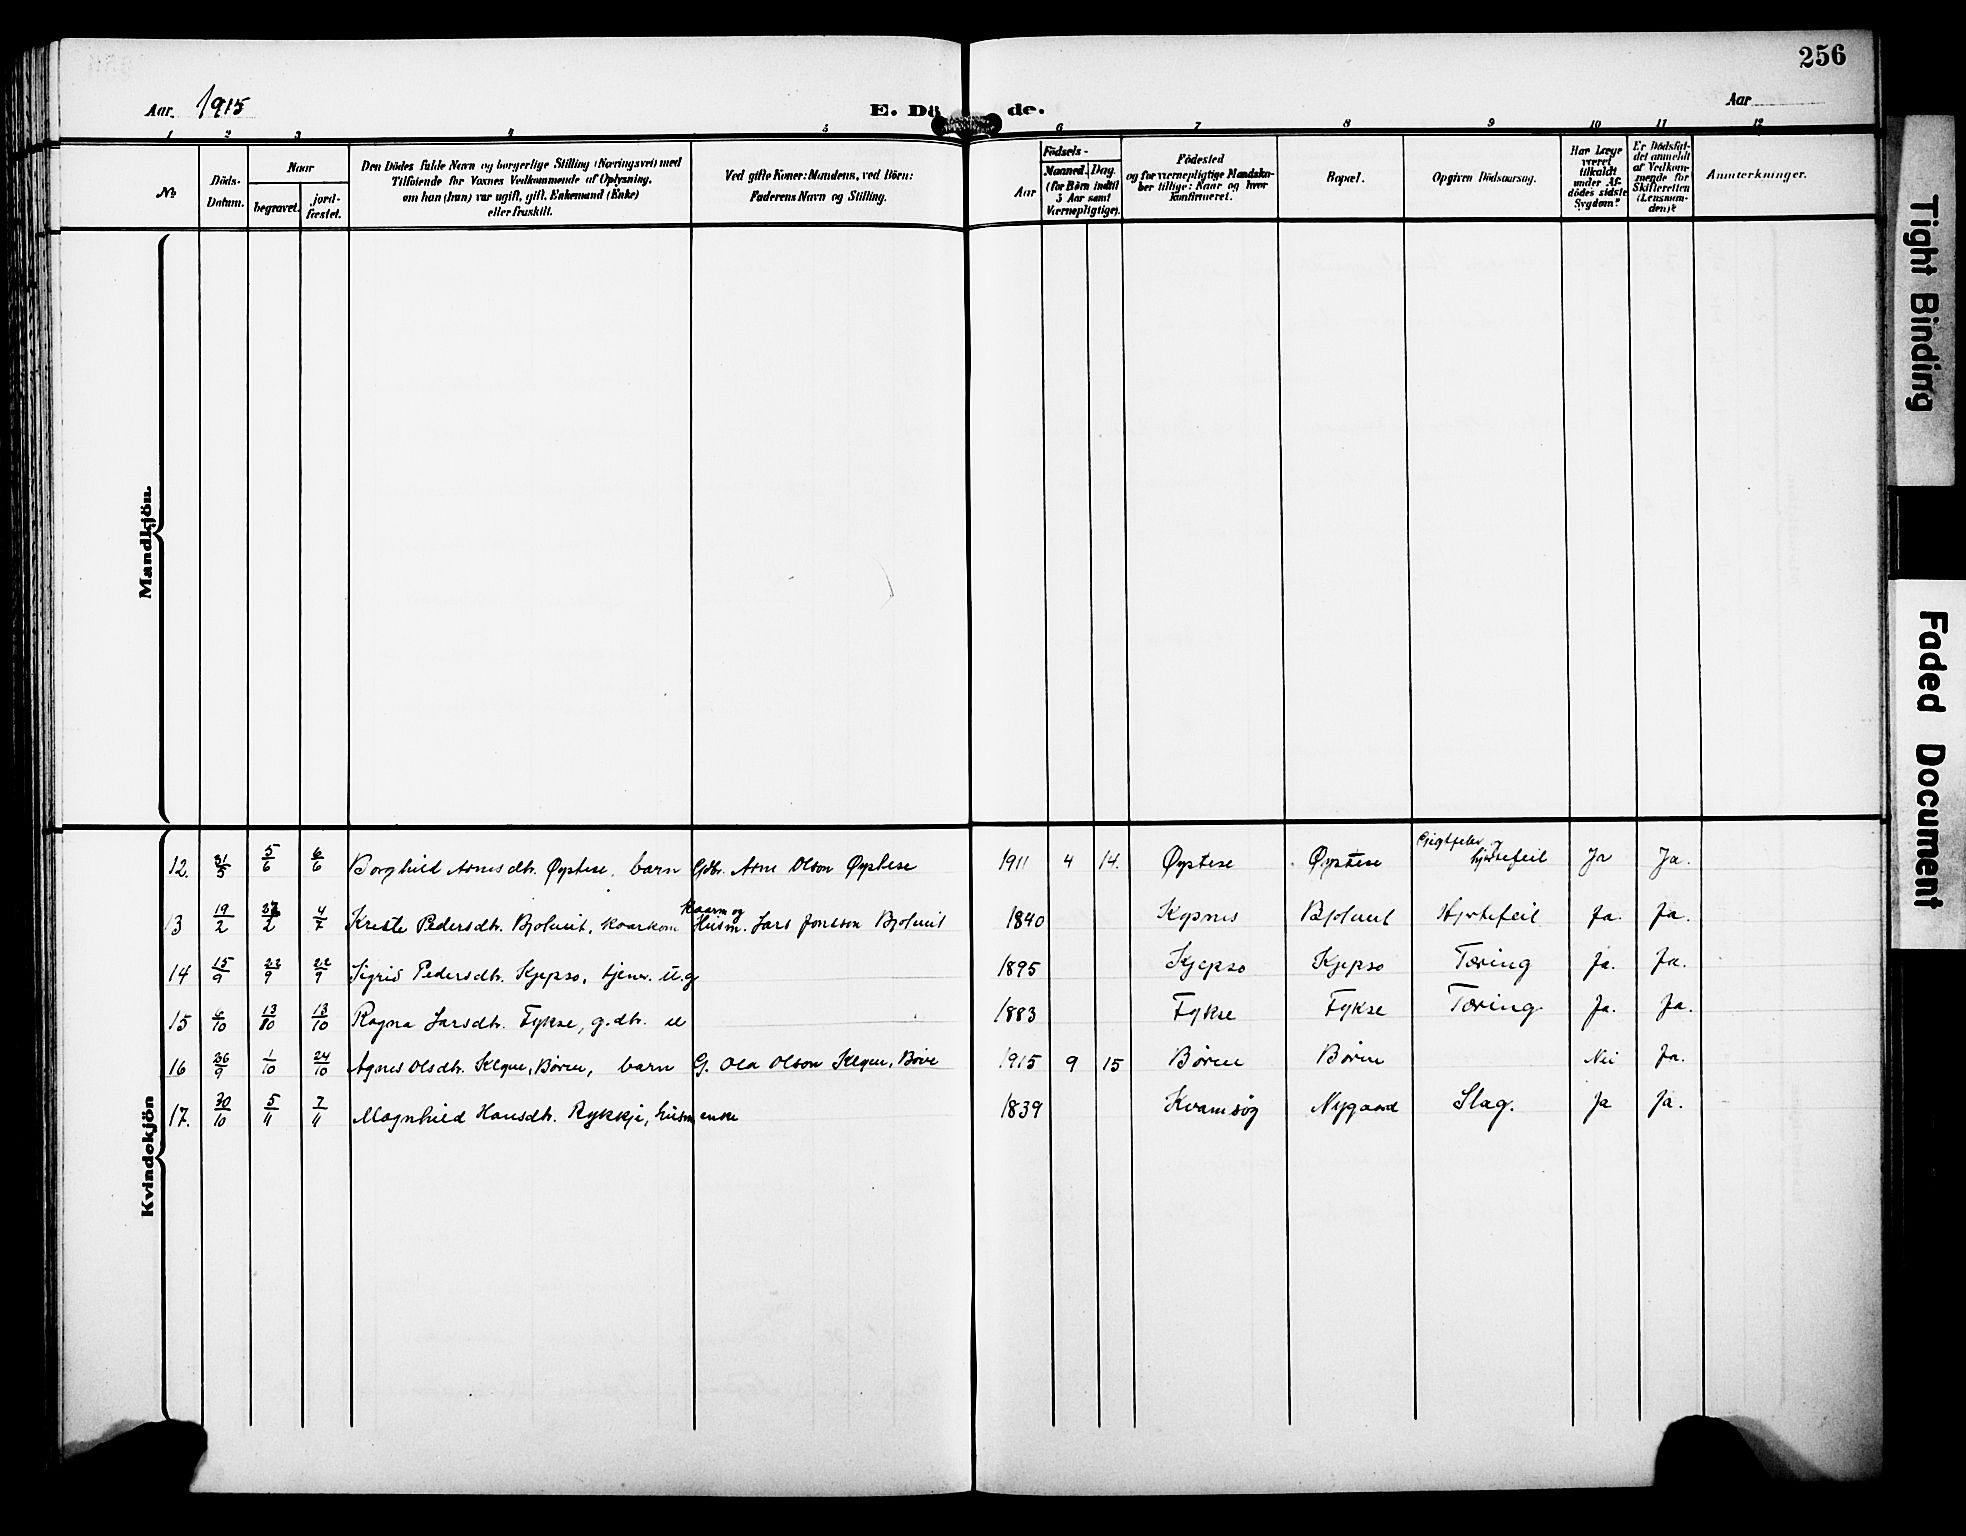 256
Aar. 1915
E. Dö de.
Aar
1 2 3 4 5 6 7 8 9 10 11 12
No
Döds-Datum.
Naar
begravet.
jord-fæstet.
Den Dödes fulde Navn og borgerlige Stilling (Næringsvei) med
Tilföiende for Voxnes Vedkommende af Oplysning,
om han (hun) var ugift, gift, Enkemand (Enke)
eller fraskilt.
Ved gifte Koner: Mandens, ved Börn:
Faderens Navn og Stilling.
Födsels-
Aar
Maaned. Dag.
(for Börn indtil
5 Aar samt
Værnepligtige).
Födested
og for værnepligtige Mandska-
ber tillige: Naar og hvor
konfirmeret.
Bopæl.
Opgiven Dödsaarsag.
Har Læge
været
tilkaldt
under Af-
dödes sidste
Sygdom?
Er Dödsfal-
det anmeldt
af Vedkom-
mende for
Skifteretten
(Lensman-
den)?
Anmerkninger.
Mandkjön.
Kvindekjön
12. 31/5 5/6 6/6 Borghild Arnesdtr. Øystese, barn Gdbr. Arne Olson Øystese 1911 4 14. Øystese Øystese Gigtfeber og hjertefeil Ja Ja.
13 19/2 27/2 4/7 Kristi Pedersdtr. Kaarm. og Husm. Lars Jonsson 1840 Hjertefeil Ja. Ja.
14 15/9 22/9 22/9 Sigrid Pedersdtr. Kjepso, tjener. u.g 1895 Kjepso Kjepso Tæring Ja. Ja.
15 6/10 13/10 13/10 Ragna Larsdtr. Fykse, g.dtr. u 1883 Fykse Fykse Tæring Ja. Ja.
16 26/9 1/10 24/10 Agnes Olsdtr. Børve, barn G. Ola Olson Børve 1915 9 15 Børve Børve Nei Ja.
17. 30/10 5/11 7/11 Magnhild Hansdtr. Rykkje, husm enke 1839 Kvamsøy Nygaard Slag. Ja Ja.
Tight Binding
Faded Document